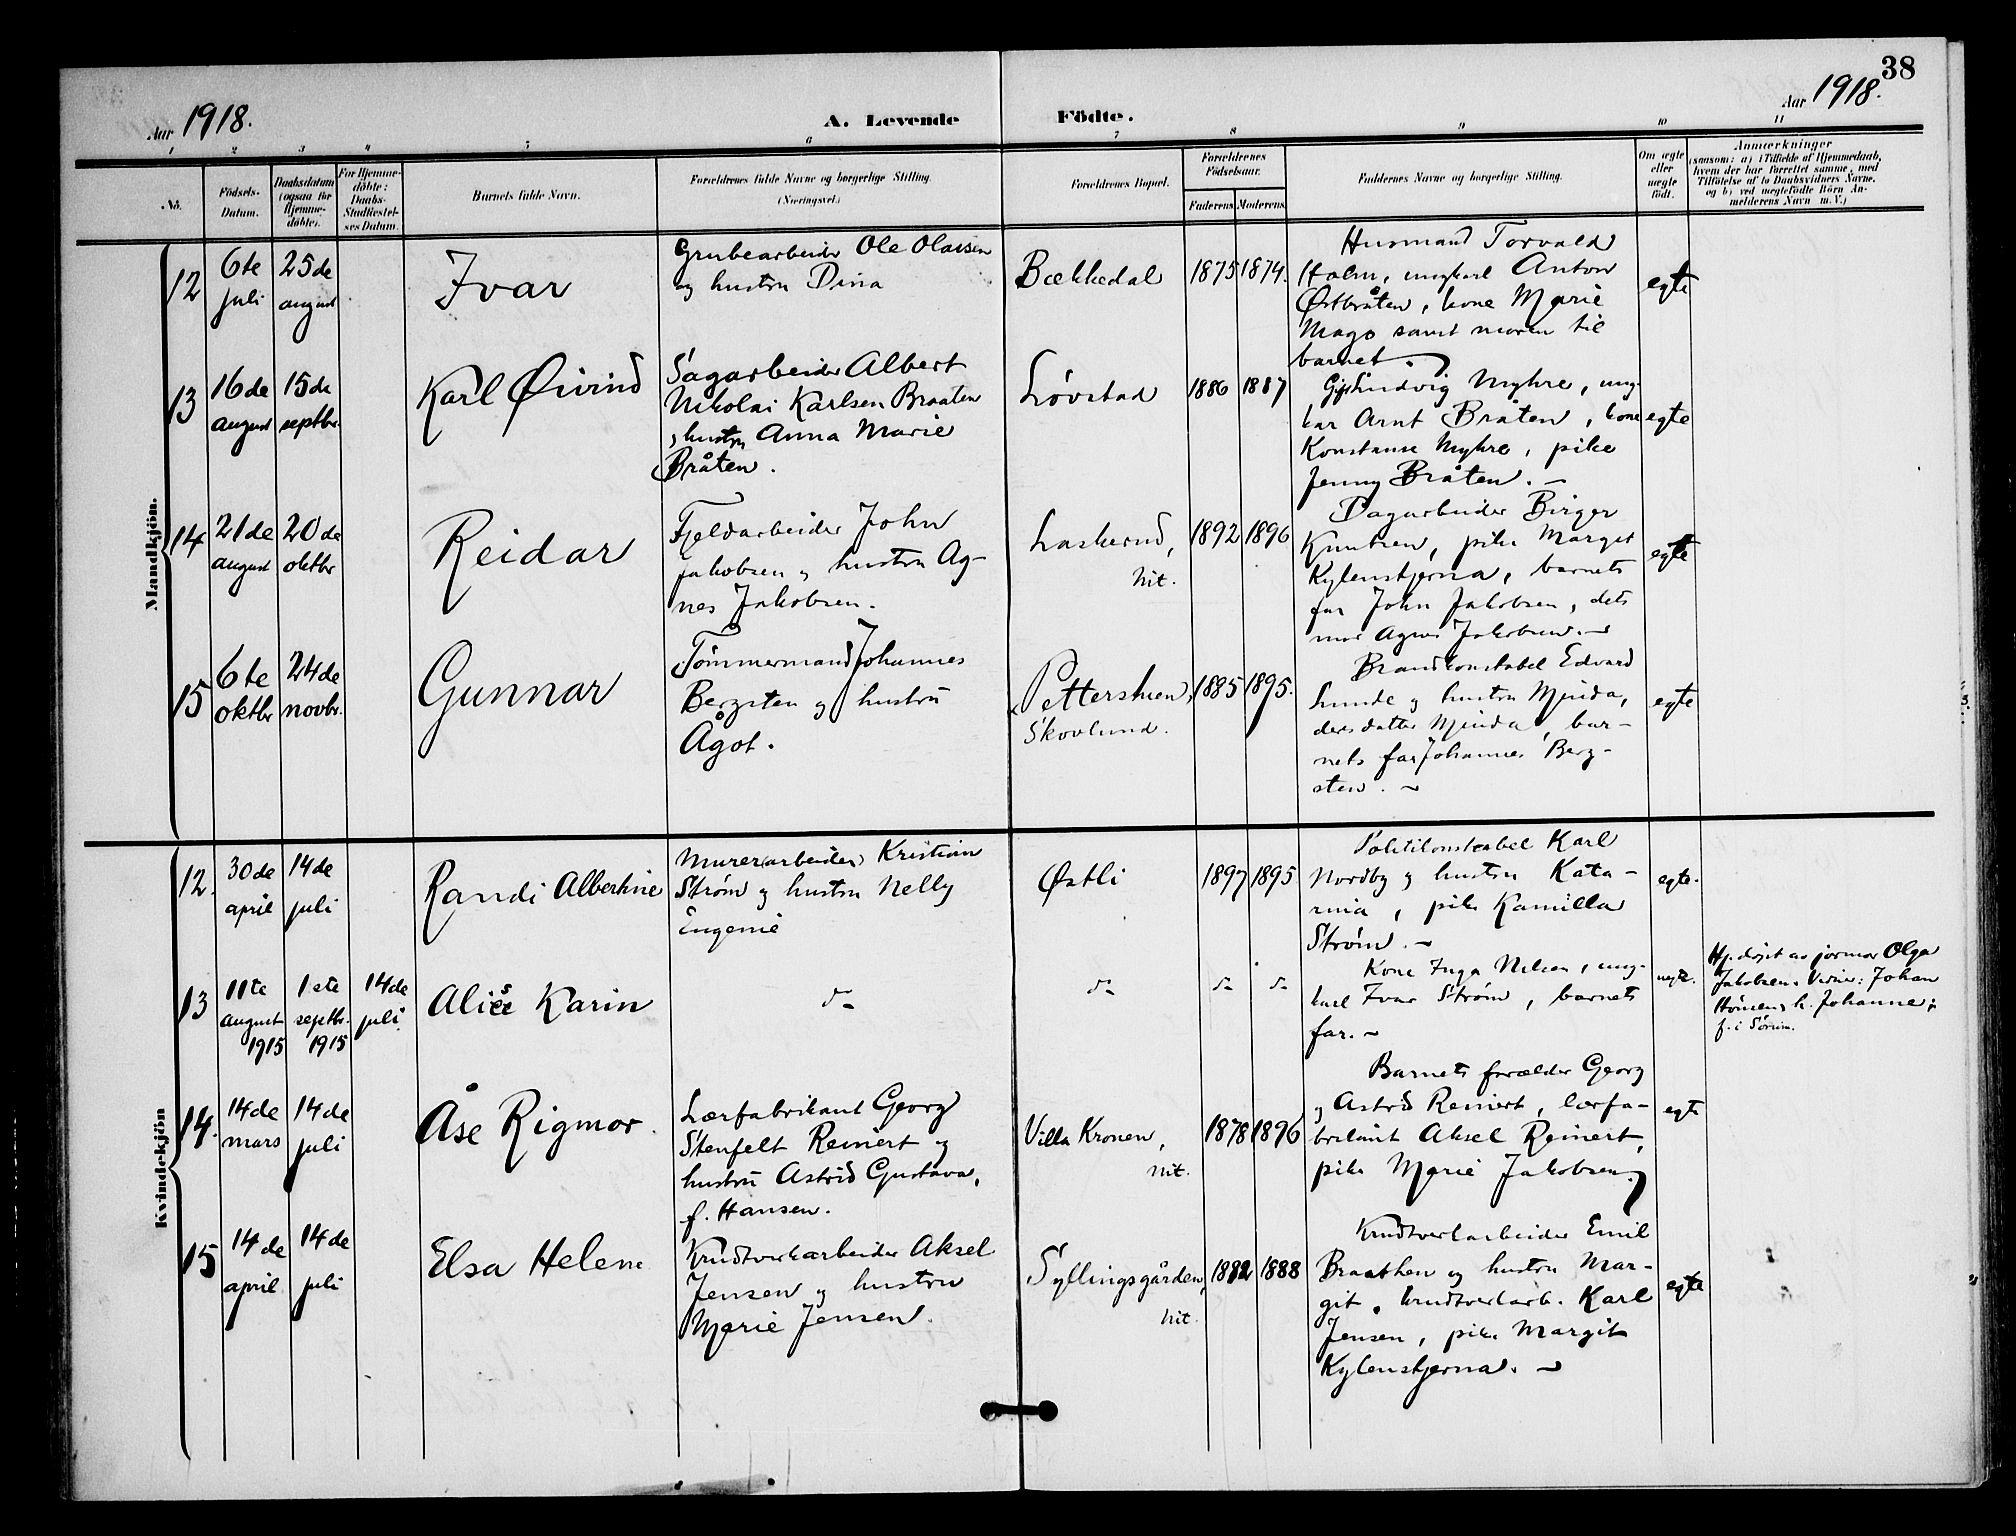 38
Aar 1918.
A. Levende Födte.
Aar 1918.
1 2 3 4 5 6 7 8 9 10 11
No.
Födsels-
Datum.
Daabsdatum
(ogsaa for
Hjemme-
döbte).
For Hjemme-
döbte:
Daabs-
Stadfæstel-
ses Datum.
Barnets fulde Navn.
Forældrenes fulde Navne og borgerlige Stilling.
(Næringsvei.)
Forældrenes Bopæl.
Forældrenes
Födselsaar.
Faderens Moderens
Faddernes Navne og borgerlige Stilling.
Om ægte
eller
uægte
födt.
Anmærkninger
(saasom: a) i Tilfælde af Hjemmedaab,
hvem der har forrettet samme, med
Tilföielse af to Daabsvidners Navne,
og b) ved uægtefödte Börn An-
melderens Navn m. V.)
Mandkjön.
12
6te
juli
25de
august
Ivar
Grubearbeider Ole Olaisen
og hustru Dina
Bækkedal
1875 1874.
Husmand Torvald
Holm, ungkarl Anton
Østbråten, kone Marie
Mago samt moren til
barnet.
egte
13
16de
august
15de
septbr.
Karl Øivind
Sagarbeider Albert
Nikolai Karlsen Braaten
, hustru Anna Marie
Bråten.
Løvstad
1886 1887
Ludvig Myhre, ung-
kar Arnt Bråten, kone
Konstanse Myhre, pike
Jenny Bråten. –
egte
14
21de
august
20de
oktbr
Reidar
Fjeldarbeider John
Jakobsen og hustru Ag-
nes Jakobsen.
Laskerud,
Nit.
1892 1896
Dagarbeider Birger
Knutsen, pike Margit
Kylenstjerna, barnets
far John Jakobsen, dets
mor Agnes Jakobsen. –
egte
15
6te
oktbr
24de
novbr.
Gunnar
Tømmermand Johannes
Bergsten og hustru
Ågot.
Pettershuen,
Skovlund.
1885 1895.
Brandkonstabel Edvard
Lunde og hustru Minda,
deres datter Minda, bar-
nets far Johannes Berg-
sten. –
egte
Kvindekjön
12.
30de
april
14de
juli
Randi Albertine
Murer(arbeider) Kristian
Strøm og hustru Nelly
Eugenie
Østli
1897 1895
Politikonstabel Karl
Nordby og hustru Kata-
rina, pike Kamilla
Strøm. –
egte.
13
11te
august
1915
1ste
septbr.
1915
14de
juli.
Alise Karin
do
do
do do
Kone Inga Nilsen, ung-
karl Ivar Strøm, barnets
far. –
uegte.
Hj.døpt av jormor Olga
Jakobsen. Vidner: Johan
Hansen, h. Johanne;
f. i Sørum.
14.
14de
mars
14de
juli
Åse Rigmor.
Lærfabrikant Georg
Stenfelt Reinert og
hustru Astrid Gustava,
f. Hansen.
Villa Kronen,
Nit.
1878 1896
Barnets forælder Georg
og Astrid Reinert, lærfa-
brikant Aksel Reinert,
pike Marie Jakobsen.
egte
15
14de
april
14de
juli
Elsa Helene
Krudtverkarbeider Aksel
Jensen og hustru
Marie Jensen.
Syllingsgården,
Nit.
1882 1888
Krudtverkarbeider Emil
Braathen og hustru Mar-
git, krudtverkarb. Karl
Jensen, pike Margit
Kylenstjerna. –
egte